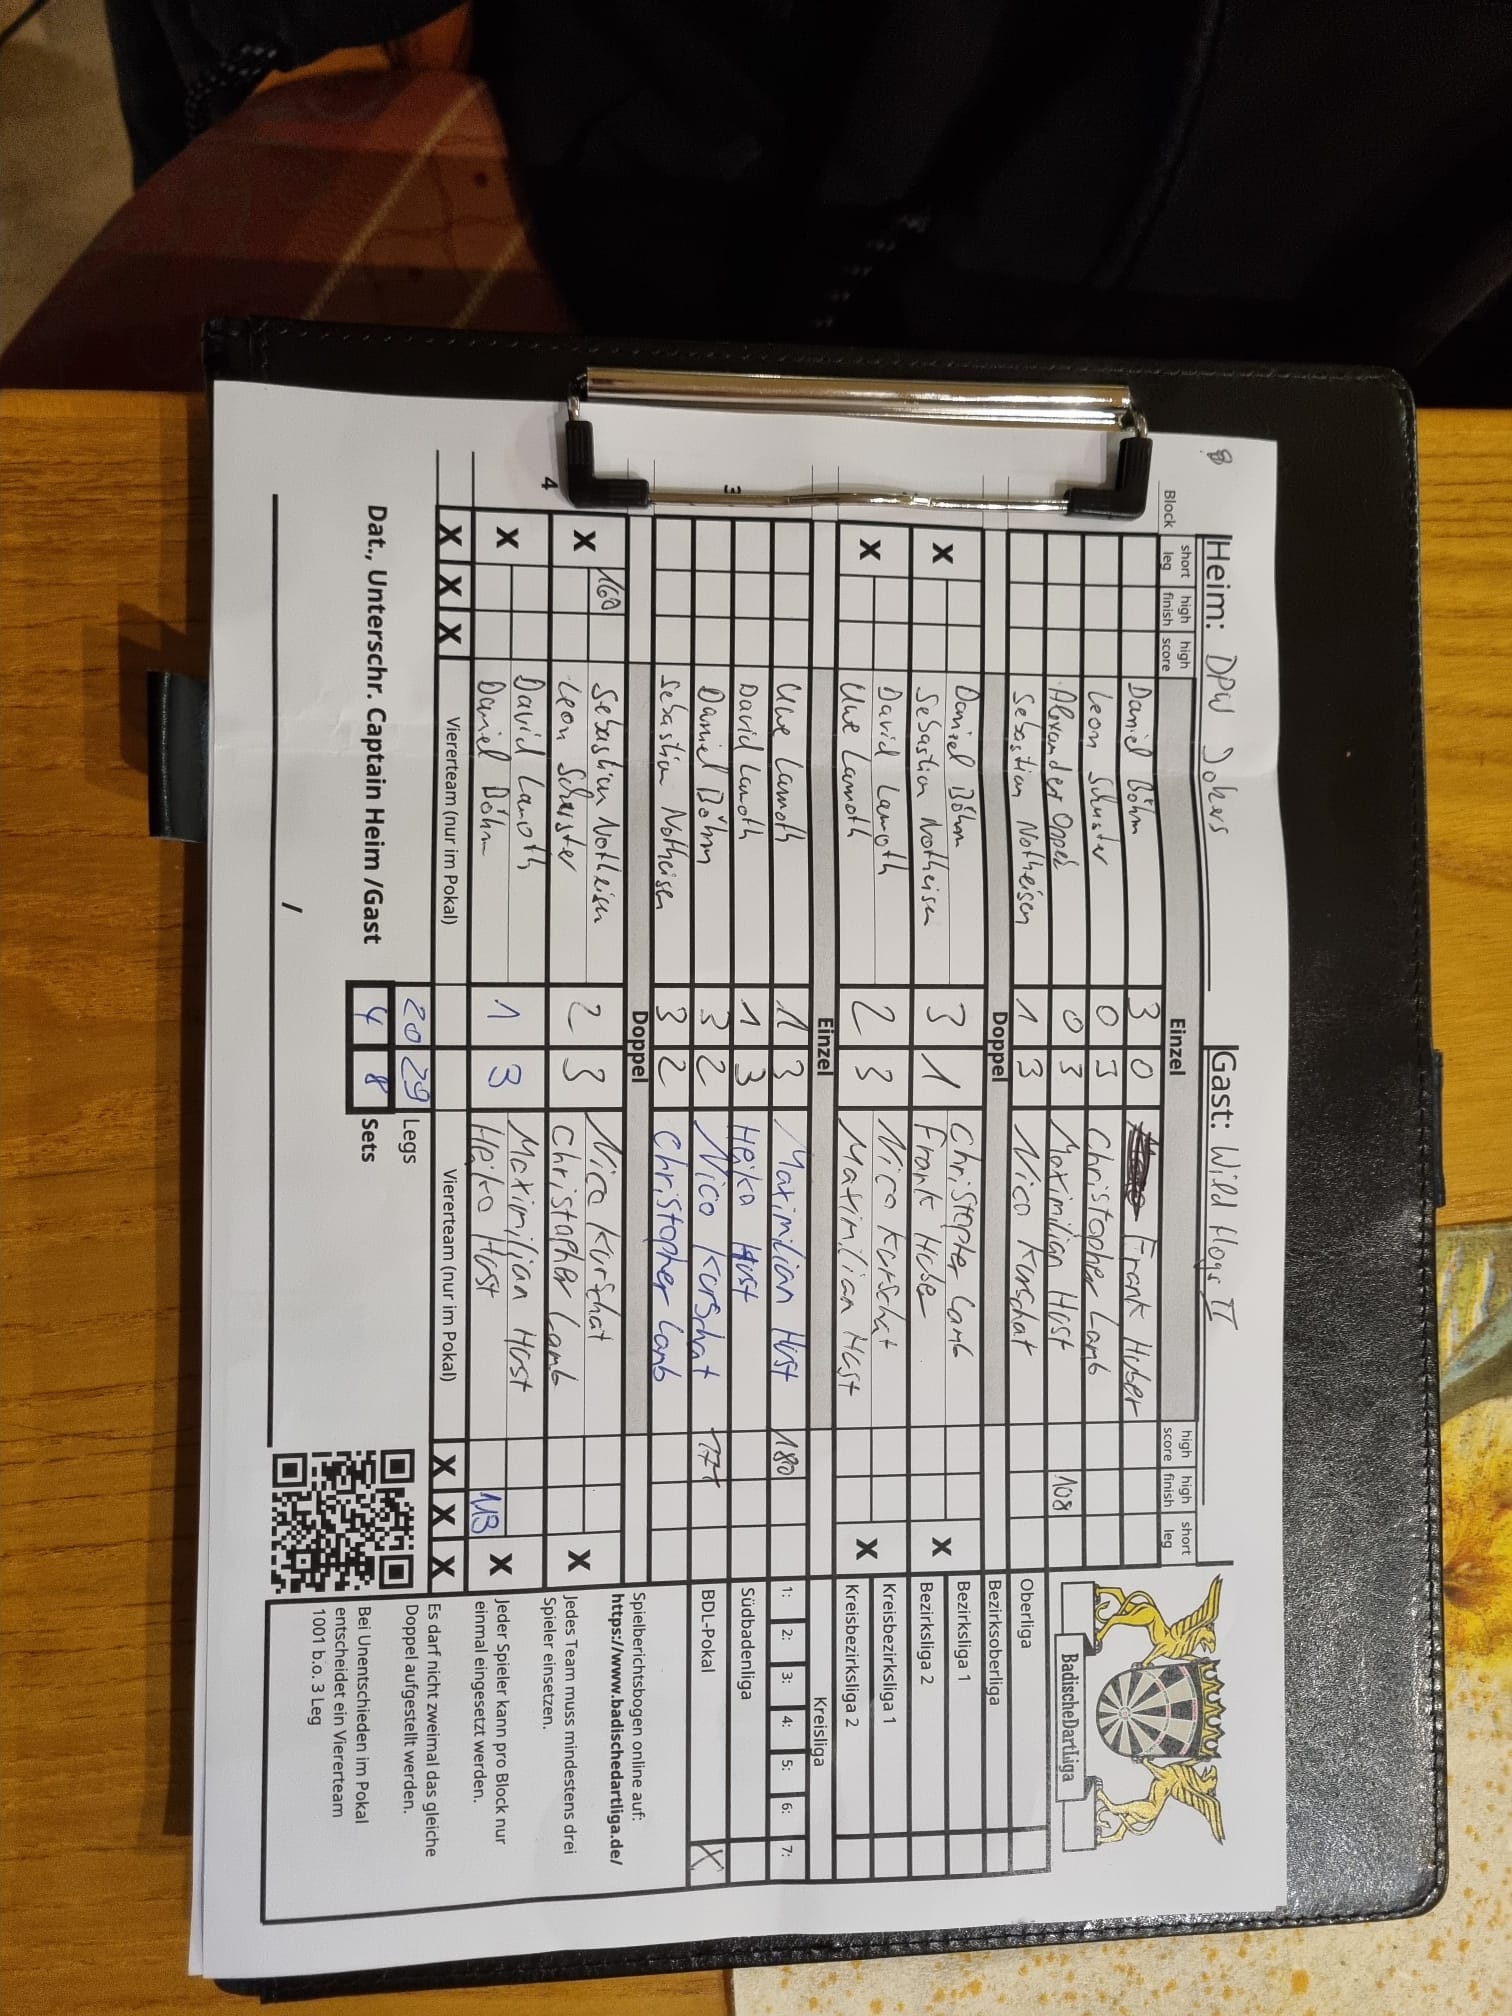 8
Heim: DPW Jokers Gast: Wild Hogs II
Block short leg high finish high score Einzel high score high finish short leg
Daniel Böhm 3 0 Frank Huber
Leon Schuster 0 3 Christopher Lamb
Alexander Oppel 0 3 Maximilian Hust 108
Sebastian Notheisen 1 3 Nico Kurschat
Doppel
X Daniel Böhm 3 1 Christopher Lamb X
Sebastian Notheisen Frank Huber
X David Lamoth 2 3 Nico Kurschat X
Uwe Lamoth Maximilian Hust
Einzel
3
Uwe Lamoth 1 3 Maximilian Hust 180
David Lamoth 1 3 Heiko Hust
Daniel Böhm 3 2 Nico Kurschat 171
Sebastian Notheisen 3 2 Christopher Lamb
Doppel
4
X 160 Sebastian Notheisen 2 3 Nico Kurschat X
Leon Schuster Christopher Lamb
X David Lamoth 1 3 Maximilian Hust X
Daniel Böhm Heiko Hust 113
X X X Viererteam (nur im Pokal) Viererteam (nur im Pokal) X X X
20 29 Legs
Dat., Unterschr. Captain Heim /Gast 4 8 Sets
/
BadischeDartLiga
Oberliga
Bezirksoberliga
Bezirksliga 1
Bezirksliga 2
Kreisbezirksliga 1
Kreisbezirksliga 2
Kreisliga
1: 2: 3: 4: 5: 6: 7:
Südbadenliga
BDL-Pokal X
Spielberichtsbogen online auf:
https://www.badischedartliga.de/
Jedes Team muss mindestens drei
Spieler einsetzen.
Jeder Spieler kann pro Block nur
einmal eingesetzt werden.
Es darf nicht zweimal das gleiche
Doppel aufgestellt werden.
Bei Unentschieden im Pokal
entscheidet ein Viererteam
1001 b.o. 3 Leg